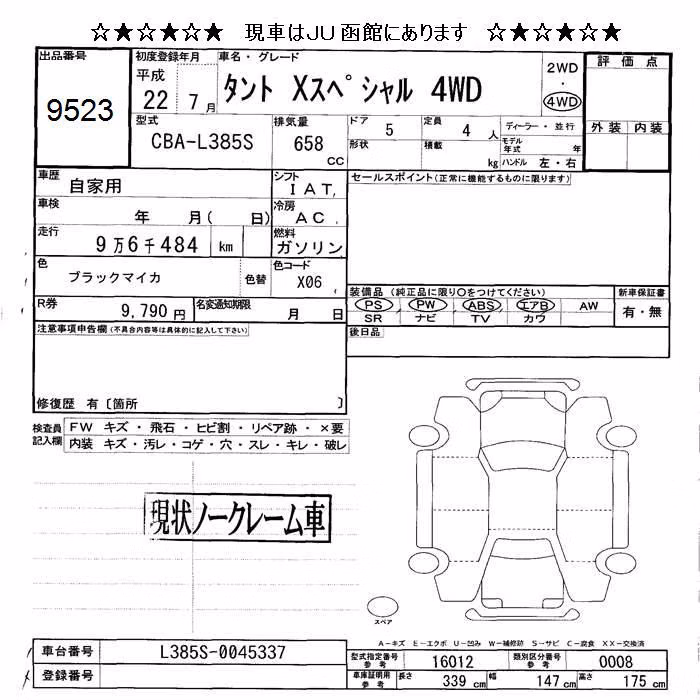 ☆★☆★☆★ 現車はJU函館にあります ☆★☆★☆★
出品番号 9523
初度登録年月 平成 22 7月
車名・グレード タント Xスペシャル 4WD
2WD ・ 4WD
評価点
外装 内装
型式 CBA-L385S
排気量 658 CC
ドア 5 定員 4 人
形状 積載 kg
ディーラー・並行
モデル年式 年
ハンドル 左・右
車歴 自家用
シフト IAT,
セールスポイント(正常に機能するものに限ります)
車検 年 月( 日)
冷房 AC,
走行 9万6千484 km
燃料 ガソリン
色 ブラックマイカ 色替
色コード X06
装備品(純正品に限り○をつけてください)
新車保証書
R券 9,790円
名変通知期限 月 日
PS PW ABS エアB AW
SR ナビ TV カワ
有・無
注意事項申告欄(不具合内容等は具体的に記入して下さい)
後日品
修復歴 有〔箇所 〕
検査員記入欄
FW キズ・飛石・ヒビ割・リペア跡・×要
内装 キズ・汚レ・コゲ・穴・スレ・キレ・破レ
現状ノークレーム車
スペア
A-キズ E-エクボ U-凹み W-補修跡 S-サビ C-腐食 XX-交換済
車台番号 L385S-0045337
登録番号
型式指定番号 参考 16012 類別区分番号 参考 0008
車庫証明用 参考 長さ 339 cm 幅 147 cm 高さ 175 cm